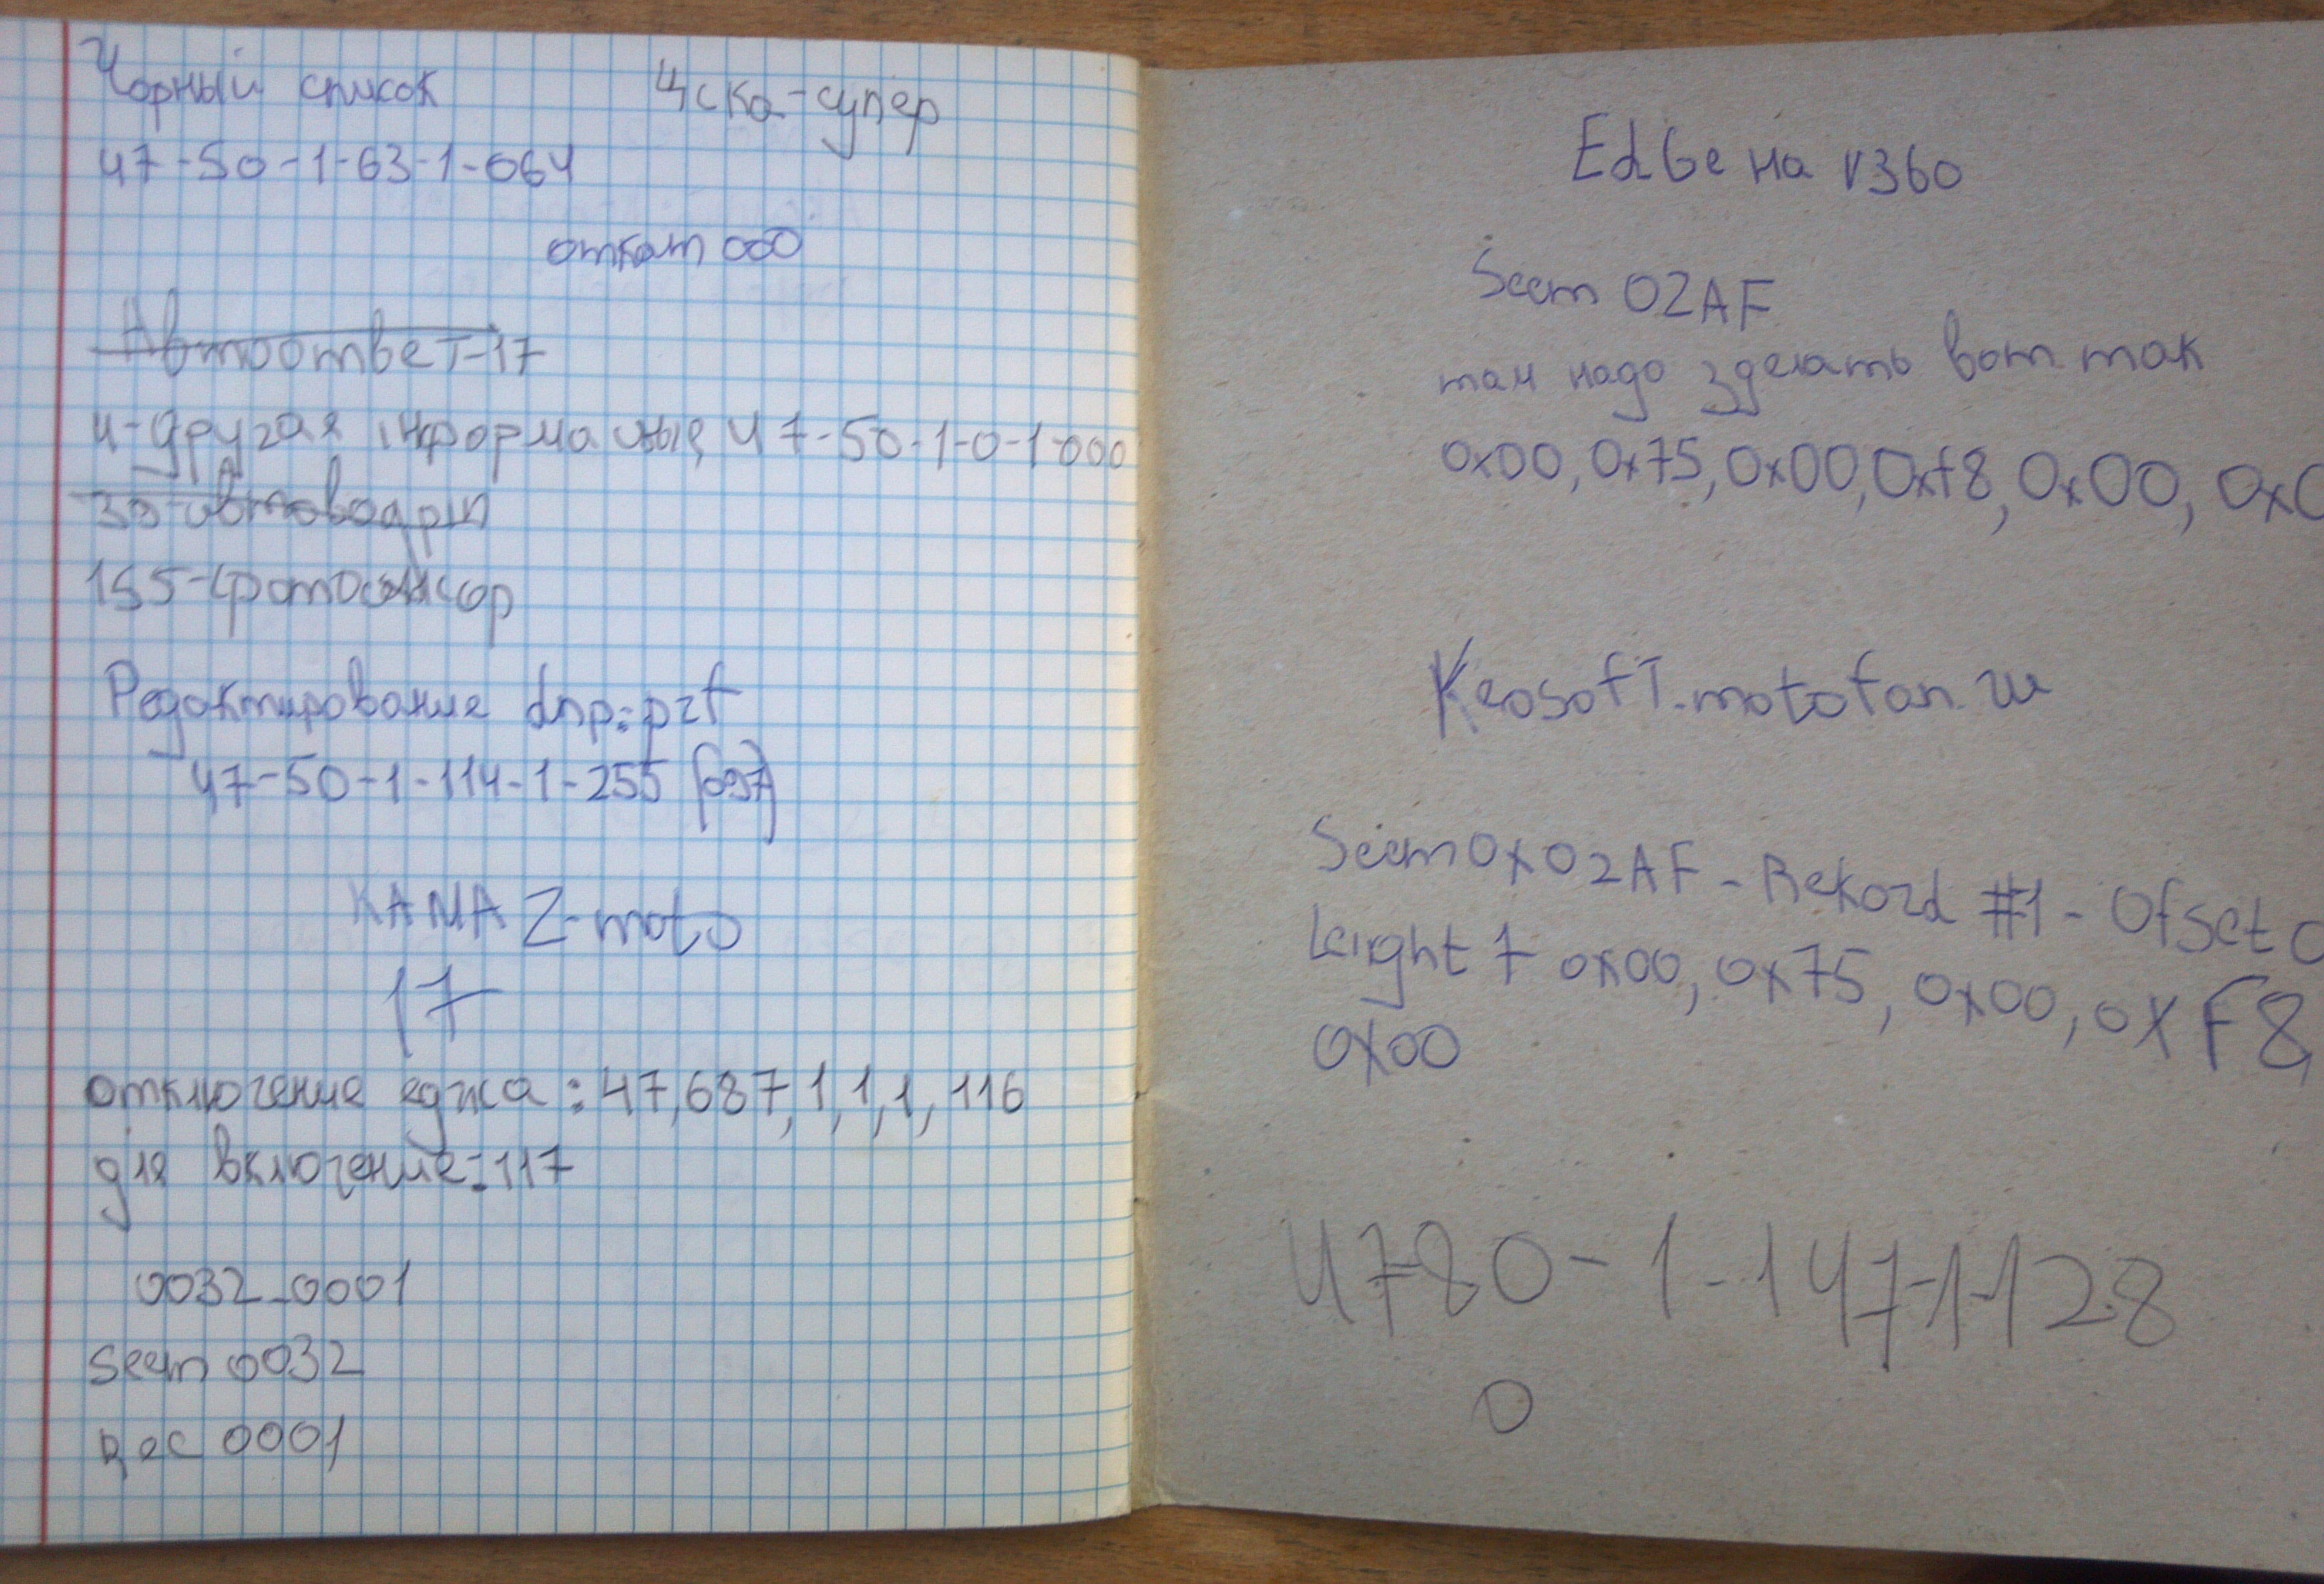 Чорный список
Цска-супер
47-50-1-63-1-064
откат 000
Автоответ-17
4-другая 47-50-1-0-1-000
155-фотосенсор
Редактирование
47-50-1-114-1-255
KAMA Z-moto
17
отключение еджа: 47,687,1,1,1, 116
для включение: 117
0032_0001
Seem 0032
Rec 0001
EdGe на V360
Seem 02AF
там надо зделать вот так
0x00, 0x75, 0x00, 0xf8, 0x00, 0x0
Keosoft.motofan.ru
Seem 0x02AF - Rekord #1 - Ofset 0
Leight 7 0x00, 0x75, 0x00, 0xF8,
0x00
47-80-1-147-1-128
0